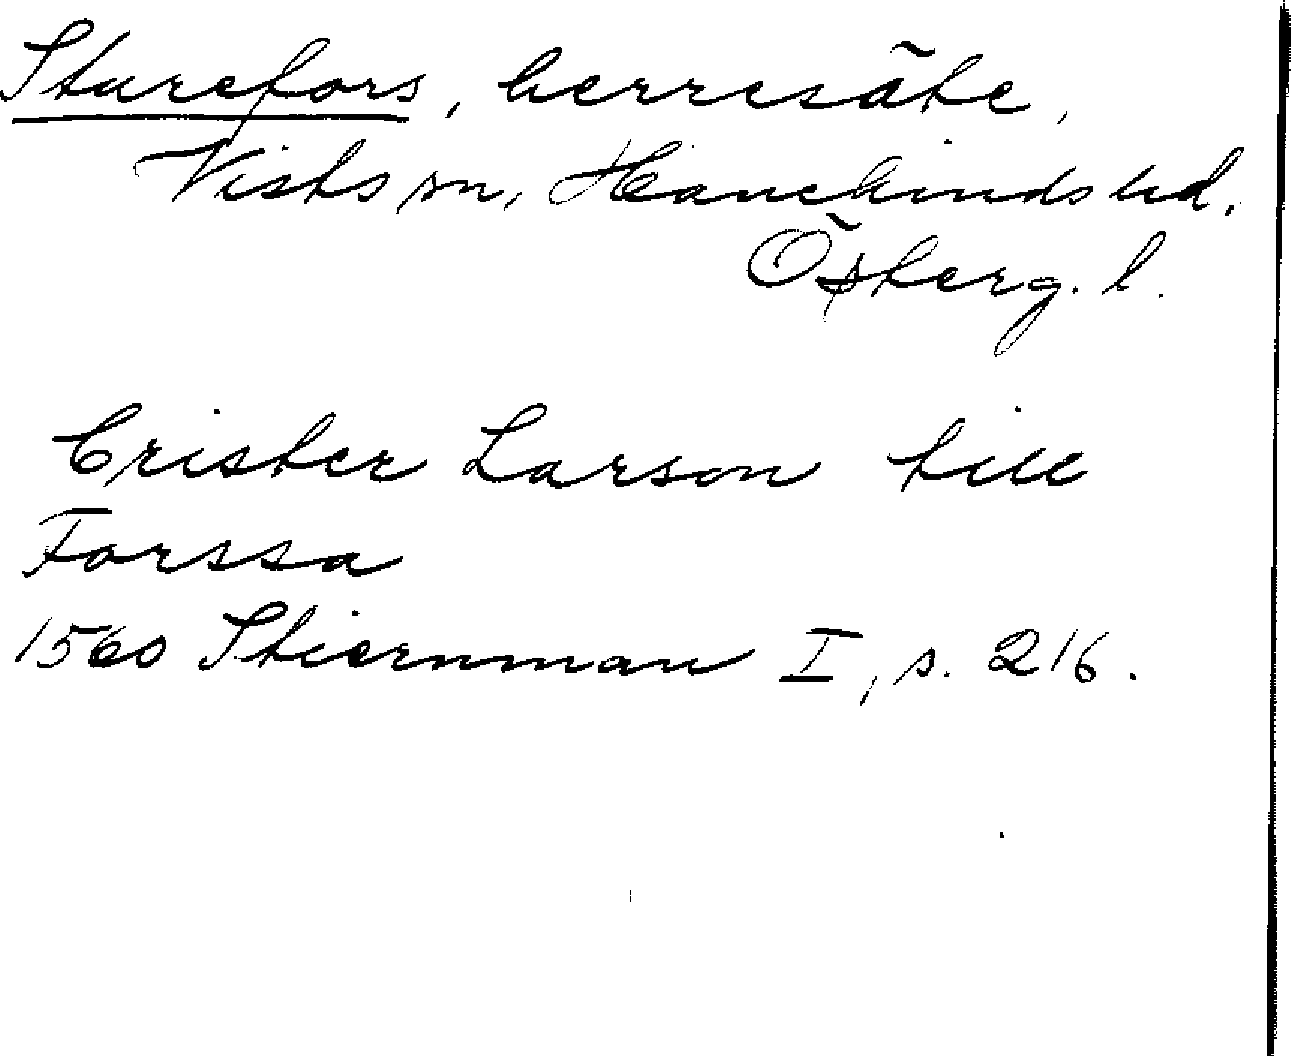 Sturefors, herresäte,
Vists sn, Hanekinds hd.
Österg. l.
Crister Larson till
Forssa
1560 Stiernman I, s. 216.